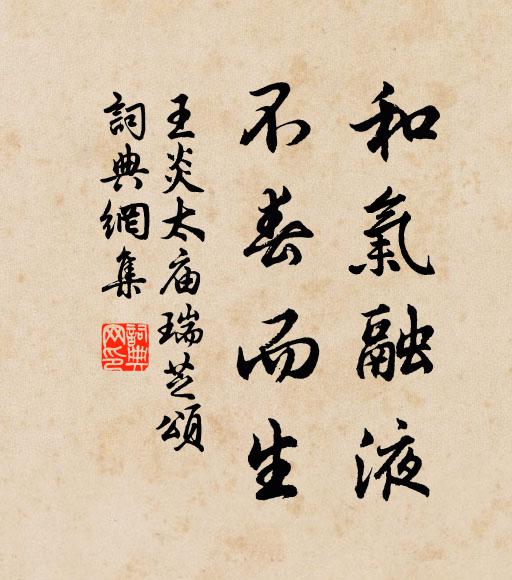 和氣融液
不春而生
王炎太庙瑞芝頌
詞典網集
詞典網印